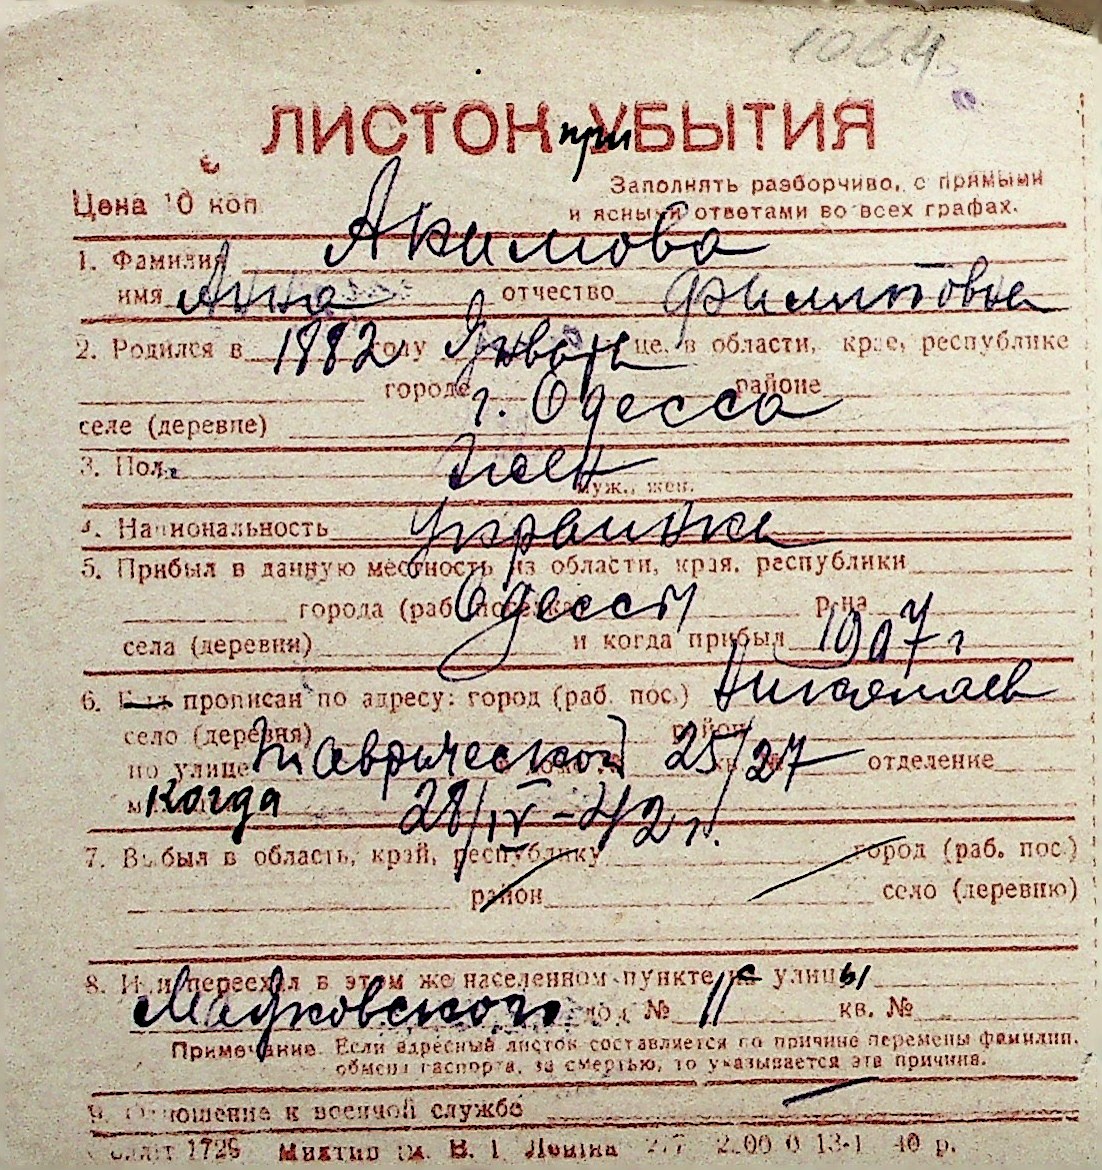 1064
ЛИСТОК при УБЫТИЯ
Цена 10 коп
Заполнять разборчиво, с прямыми
и ясными ответами во всех графах.
1. Фамилия Акимова
имя Анна отчество Филиповна
2. Родился в 1882 году Январь це, в области, крае, республике
городе г. Одесса районе
селе (деревне)
3. Пол жен
муж., жен.
4. Национальность украинка
5. Прибыл в данную местность из области, края, республики
города (раб. поселка) Одессы р-на
села (деревни) и когда прибыл 1907 г
6. Был прописан по адресу: город (раб. пос.) Николаев
село (деревня) район
по улице Таврической 25/27 отделение
Когда 28/IV-42 г.
7. Выбыл в область, край, республику город (раб. пос.)
район село (деревню)
8. Или переехал в этом же населенном пункте с улицы
дом № 11 кв. №
Примечание. Если адресный листок составляется по причине перемены фамилии,
обмена паспорта, за смертью, то указывается эта причина.
9. Отношение к военной службе
1729 В. І. Леніна 40 р.